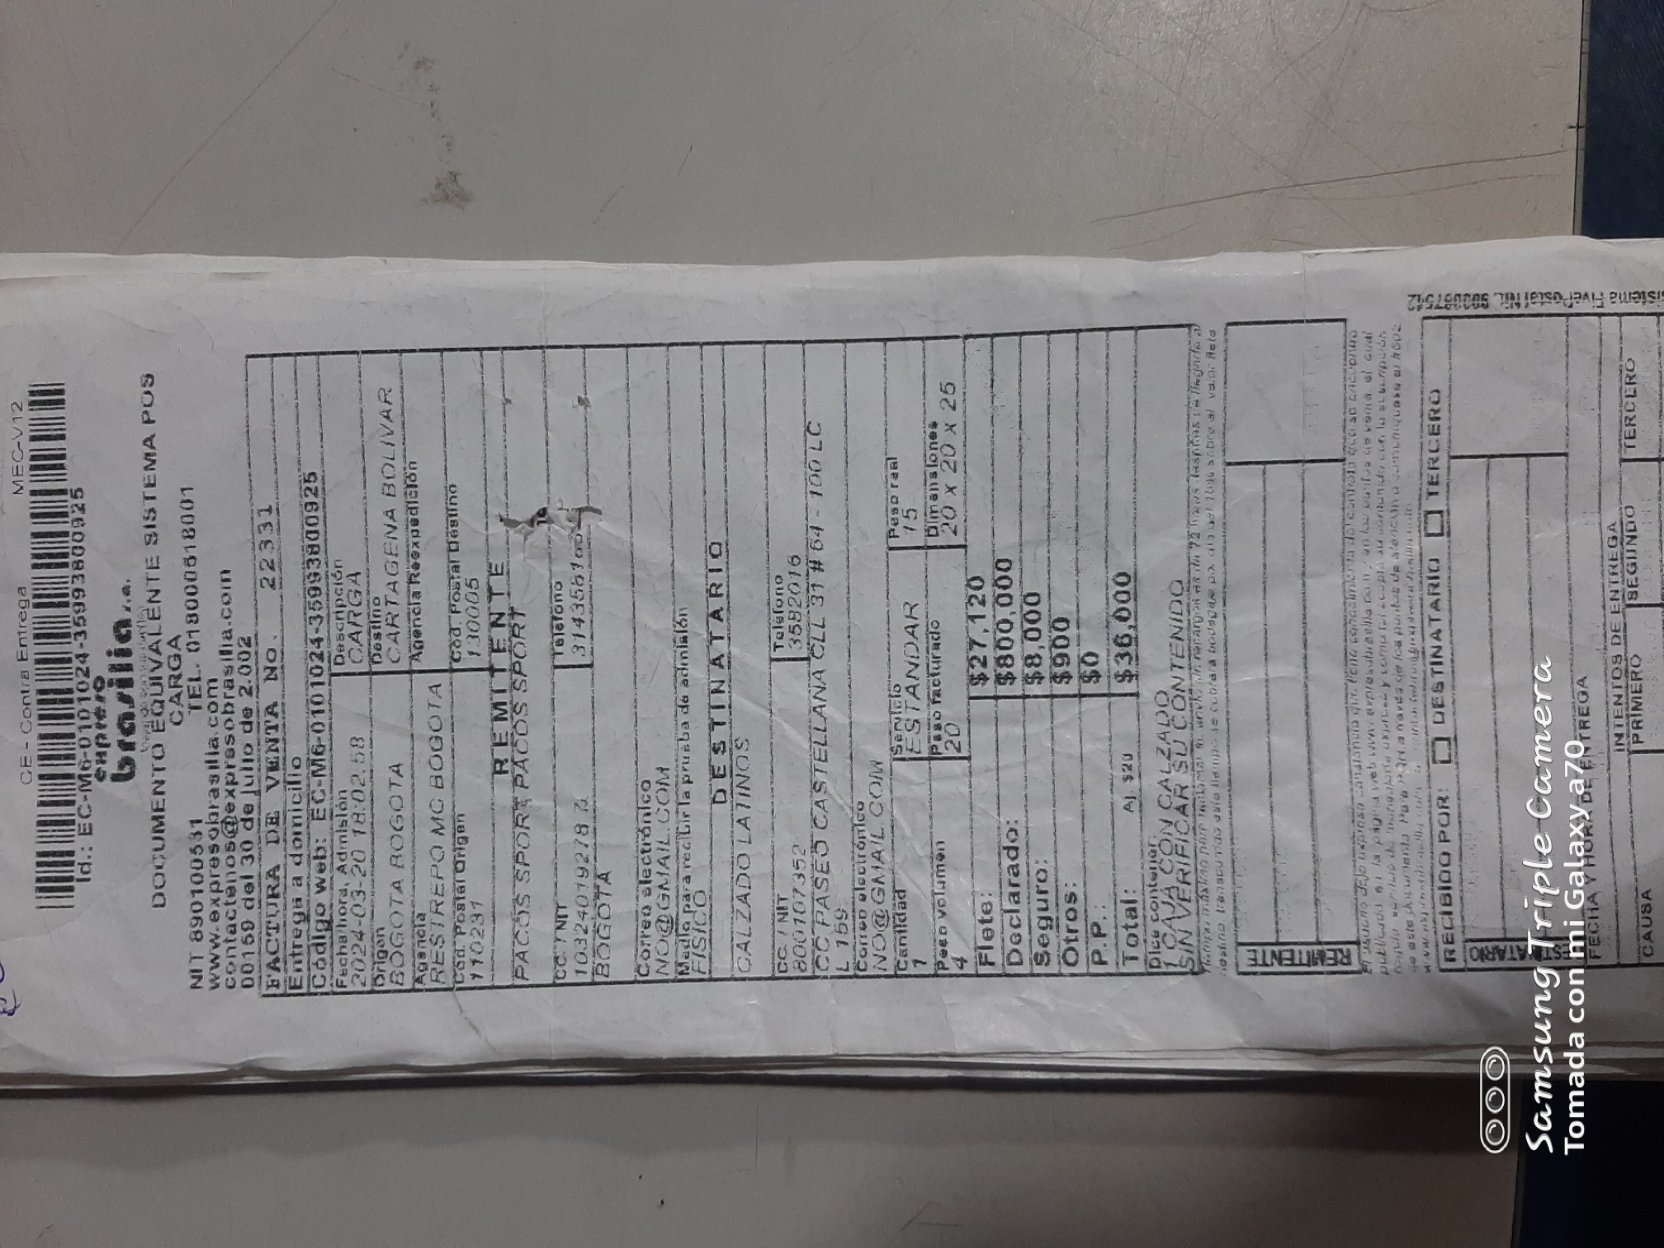 CE - Contra Entrega MEC-V12
Id.: EC-M6-0101024-35993800925
expreso
brasilia s.a.
DOCUMENTO EQUIVALENTE SISTEMA POS
CARGA
NIT 890100531 TEL. 018000518001
www.expresobrasilia.com
contactenos@expresobrasilia.com
00159 del 30 de julio de 2.002
FACTURA DE VENTA No. 22331
Entrega a domicilio
Código web: EC-M6-0101024-35993800925
Fecha/hora. Admisión Descripción
2024-03-20 18:02:58 CARGA
Origen Destino
BOGOTA BOGOTA CARTAGENA BOLIVAR
Agencia Agencia Reexpedición
RESTREPO MC BOGOTA
Cód. Postal Origen Cód. Postal Destino
110231 130005
REMITENTE
PACOS SPORT PACOS SPORT
CC. / NIT Teléfono
BOGOTA
Correo electrónico
NO@GMAIL.COM
Medio para recibir la prueba de admisión
FISICO
DESTINATARIO
CALZADO LATINOS
CC. / NIT Teléfono
8001107352 35882016
CC PASEO CASTELLANA CLL 31 # 64 - 100 LC
L 159
Correo electrónico
NO@GMAIL.COM
Cantidad Servicio Peso real
1 ESTANDAR 15
Peso volumen Peso facturado Dimensiones
4 20 20 x 20 x 25
Flete: $27,120
Declarado: $800,000
Seguro: $8,000
Otros: $900
P.P.: $0
Total: Aj. $20 $36,000
Dice contener:
1 CAJA CON CALZADO
SIN VERIFICAR SU CONTENIDO
REMITENTE
RECIBIDO POR: DESTINATARIO TERCERO
FECHA Y HORA DE ENTREGA
INTENTOS DE ENTREGA
CAUSA PRIMERO SEGUNDO TERCERO
Samsung Triple Camera
Tomada con mi Galaxy a70